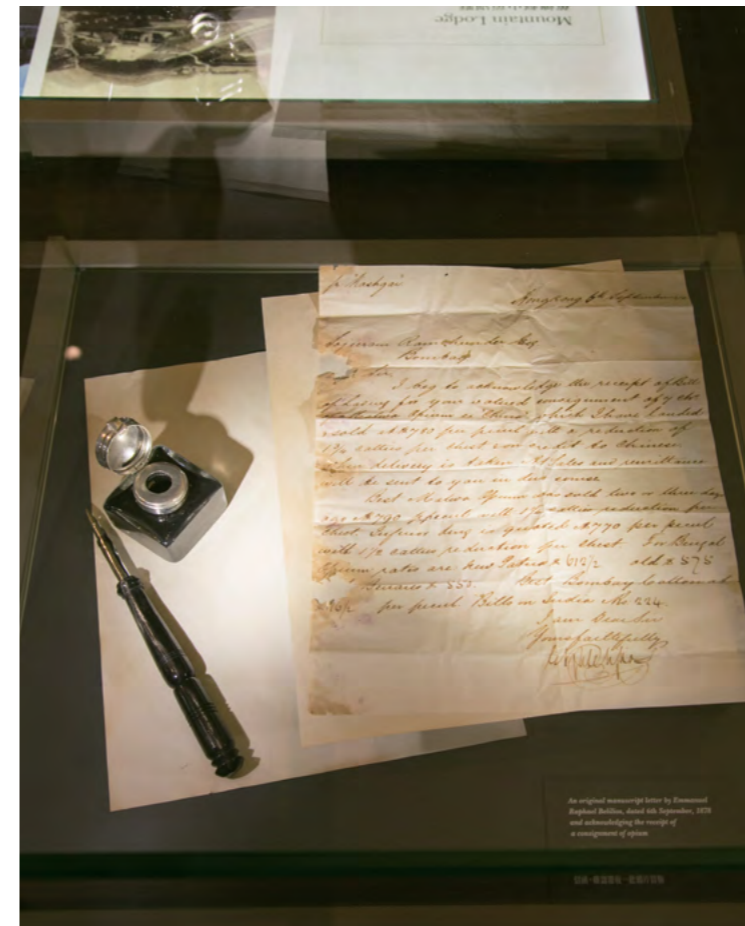 Mountain Lodge
Hongkong 6th September
Bombay
Sir
I beg to acknowledge the receipt of Bill
of Lading for your valued consignment of 7 chts
Opium which I have landed
sold @ $790 per pecul with a reduction of
1½ catties per chest on credit to Chinese
When delivery is taken sales and remittance
will be sent to you in due course
Best Malwa Opium was sold two or three days
ago @ $790 pecul with 1½ catties reduction per
chest. is quoted @ $770 per pecul
with 1½ catties reduction per chest. For Bengal
Opium rates are New Patna $ 612½ old $ 575
Benares $ 553. Best Bombay Cotton at
per pecul Bills on India Rs 224.
I am Dear Sir
Yours faithfully
An original manuscript letter by Emmanuel
Raphael Belilios, dated 6th September, 1878
and acknowledging the receipt of
a consignment of opium